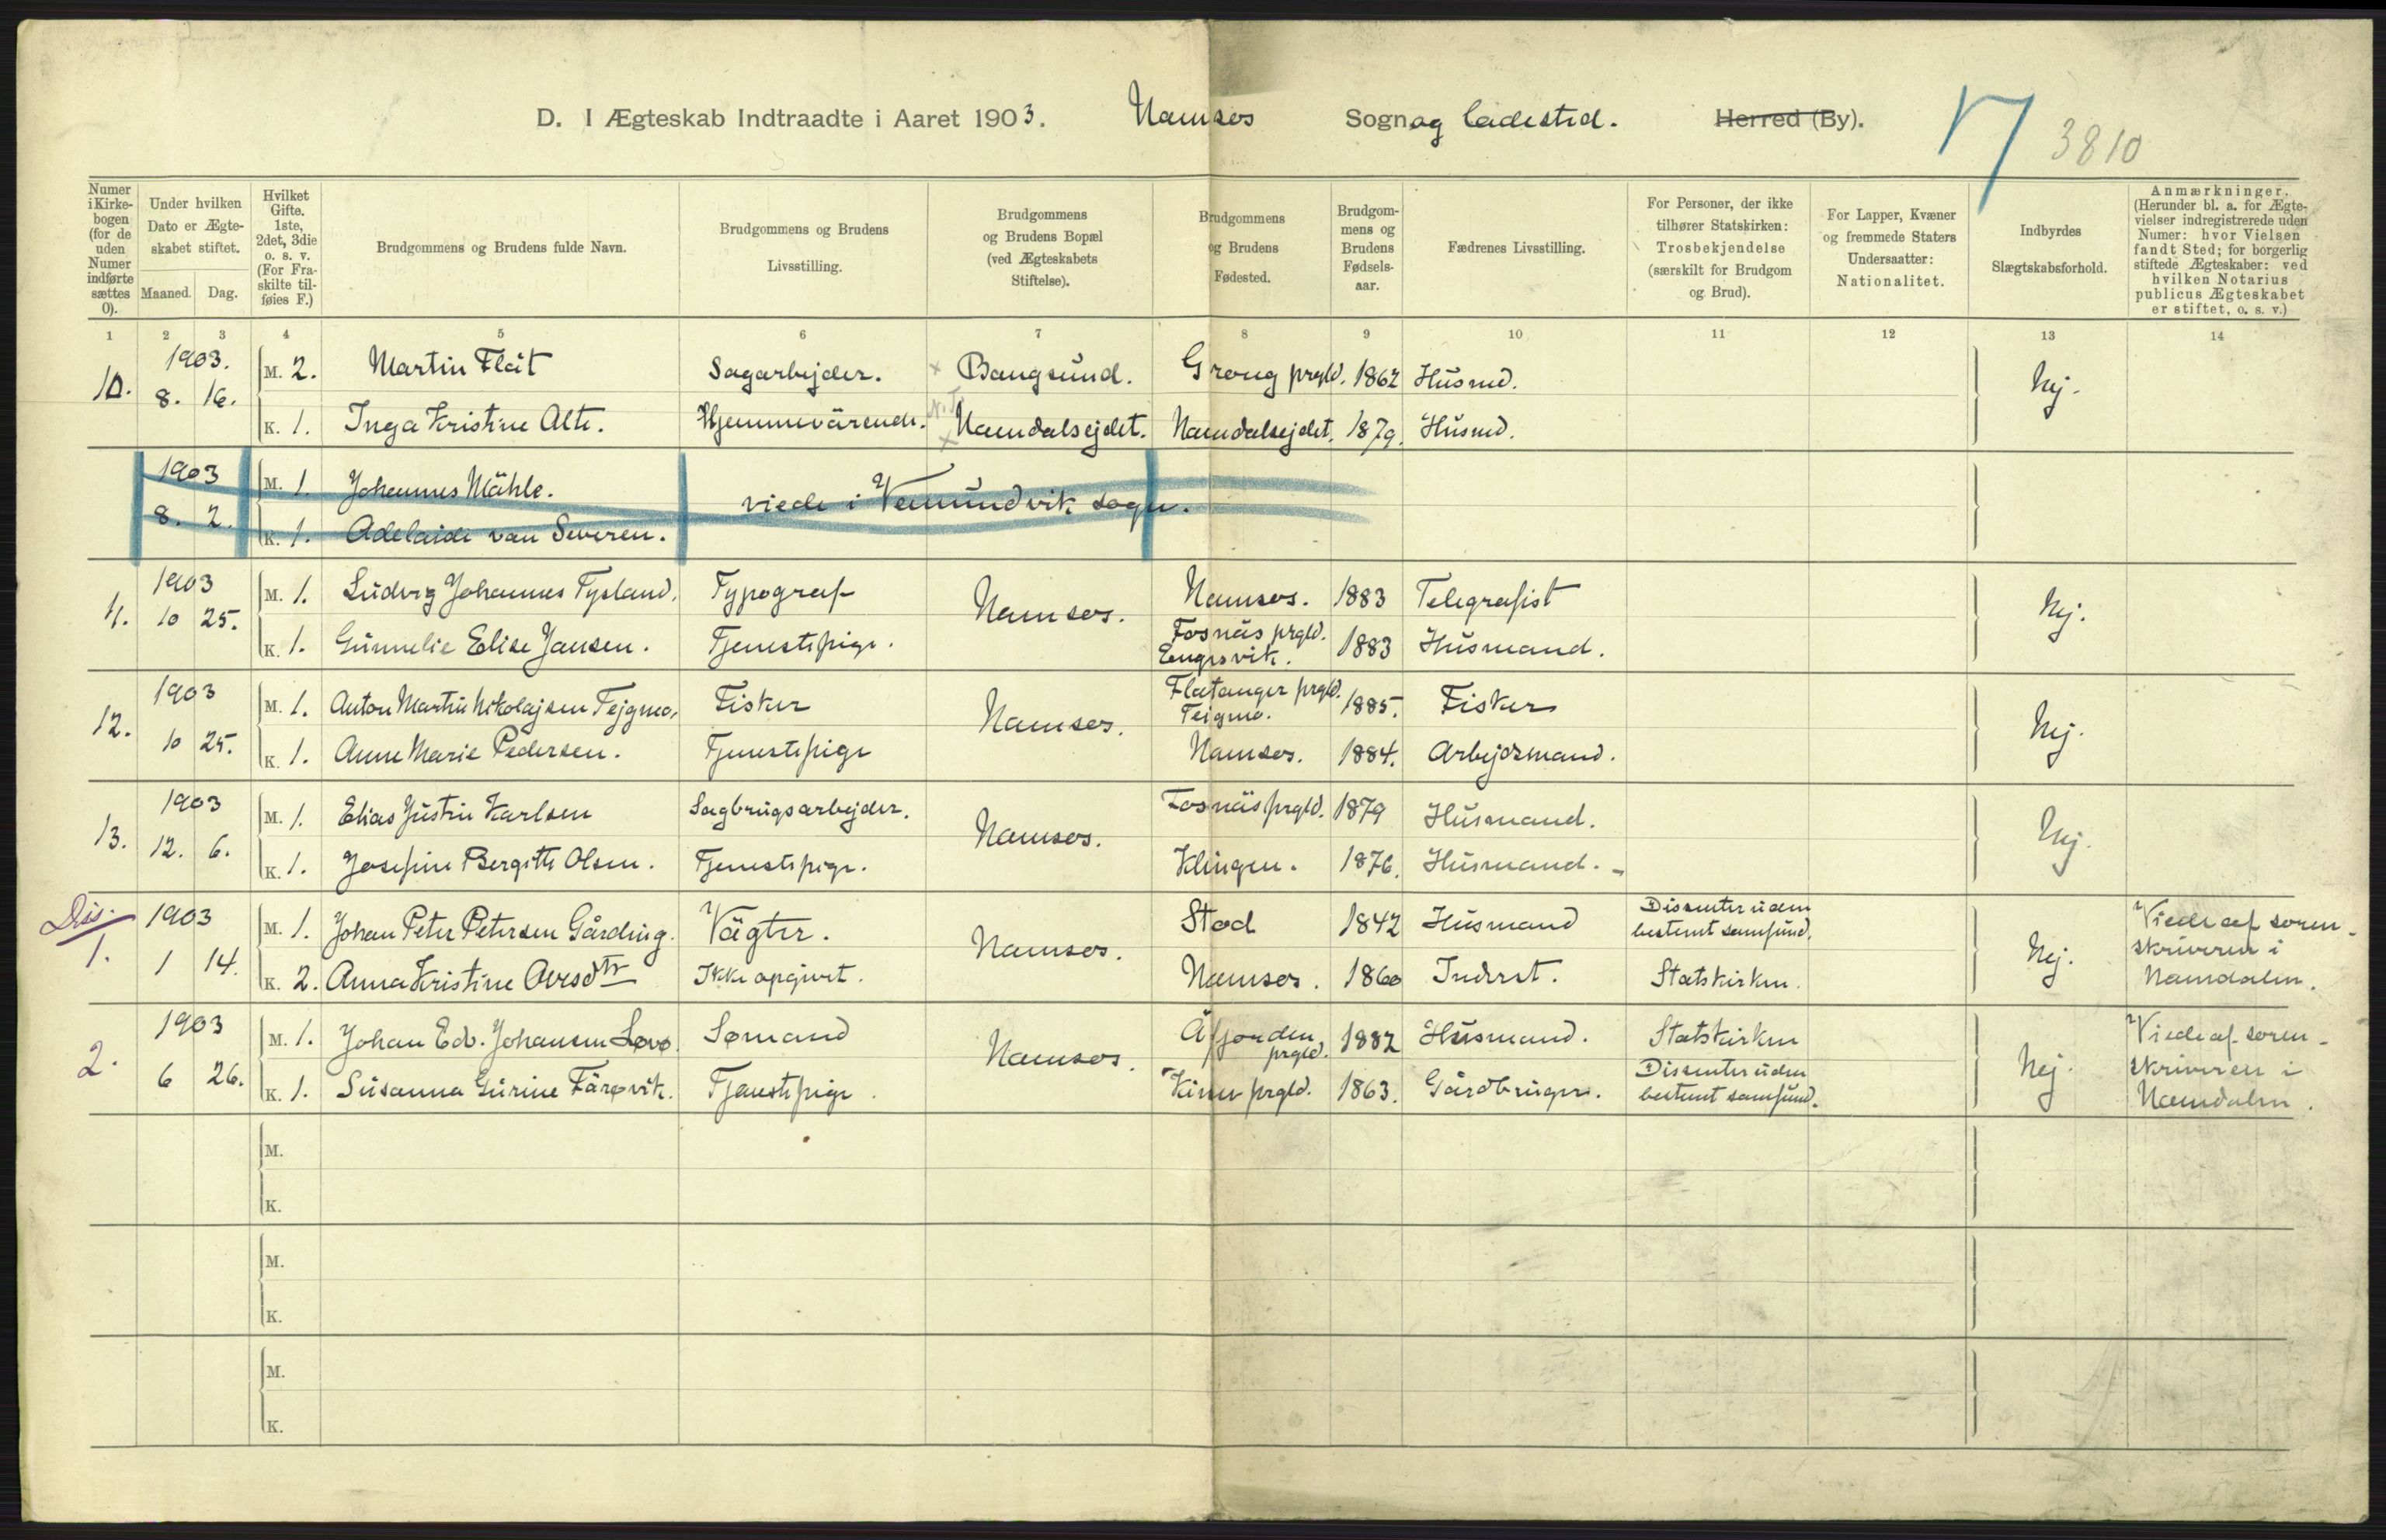 D. I Ægteskab Indtraadte i Aaret 1903. Namsos Sogn og ladested. Herred (By). 3810
Numer i Kirke-bogen (for de uden Numer indførte sættes 0).
Under hvilken Dato er Ægte-skabet stiftet.
Maaned. Dag.
Hvilket Gifte. 1ste, 2det, 3die o. s. v. (For Fra-skilte til-føies F.)
Brudgommens og Brudens fulde Navn.
Brudgommens og Brudens Livsstilling.
Brudgommens og Brudens Bopæl (ved Ægteskabets Stiftelse).
Brudgommens og Brudens Fødested.
Brudgom-mens og Brudens Fødsels-aar.
Fædrenes Livsstilling.
For Personer, der ikke tilhører Statskirken: Trosbekjendelse (særskilt for Brudgom og Brud).
For Lapper, Kvæner og fremmede Staters Undersaatter: Nationalitet.
Indbyrdes Slægtskabsforhold.
Anmærkninger. (Herunder bl. a. for Ægte-vielser indregistrerede uden Numer: hvor Vielsen fandt Sted; for borgerlig stiftede Ægteskaber: ved hvilken Notarius publicus Ægteskabet er stiftet, o. s. v.)
1 2 3 4 5 6 7 8 9 10 11 12 13 14
10. 1903. 8. 16. M. 2. Martin Flåt Sagarbejder. Bangsund. Grong prgld. 1862 Husmd. Nej.
K. 1. Inga Kristine Alte. Hjemmeværende. Namdalsejdet. Namdalsejdet. 1879. Husmd.
1903 8. 2. M. 1. Johannes Mähle. viede i Vemundvik sogn.
K. 1. Adelaide van Severen.
11. 1903 10 25. M. 1. Ludvig Johannes Fysland. Typograf Namsos. Namsos. 1883 Telegrafist Nej.
K. 1. Gunnelie Elise Jansen. Tjenestepige. Fosnäs prgld. Engesvik. 1883 Husmand.
12. 1903 10 25. M. 1. Anton Martin Nikolajsen Tejgmo. Fisker Namsos. Flatanger prgld. Teigmo. 1885. Fisker Nej.
K. 1. Anne Marie Pedersen. Tjenestepige Namsos. 1884. Arbejdsmand.
13. 1903 12. 6. M. 1. Elias Justin Karlsen Sagbrugsarbejder. Namsos. Fosnäs prgld. 1879 Husmand. Nej.
K. 1. Josefine Bergitte Olsen. Tjenestepige. Klingen. 1876. Husmand.
Dis. 1. 1903 1 14. M. 1. Johan Peter Petersen Gårding. Vägter. Namsos. Stod 1842 Husmand Dissenter uden bestemt samfund. Nej. Viede af soren-skriveren i Namdalen.
K. 2. Anna Kristine Aresdtr Ikke opgivet. Namsos. 1860 Inderst. Statskirken.
2. 1903 6 26. M. 1. Johan Edv. Johansen Løvø. Sømand Namsos. Åfjorden prgld. 1882 Husmand. Statskirken Nej. Viede af soren-skriveren i Namdalen.
K. 1. Susanna Gurine Färøvik. Tjenestepige. Kinn prgld. 1863. Gårdbruger. Dissenter uden bestemt samfund.
M.
K.
M.
K.
M.
K.